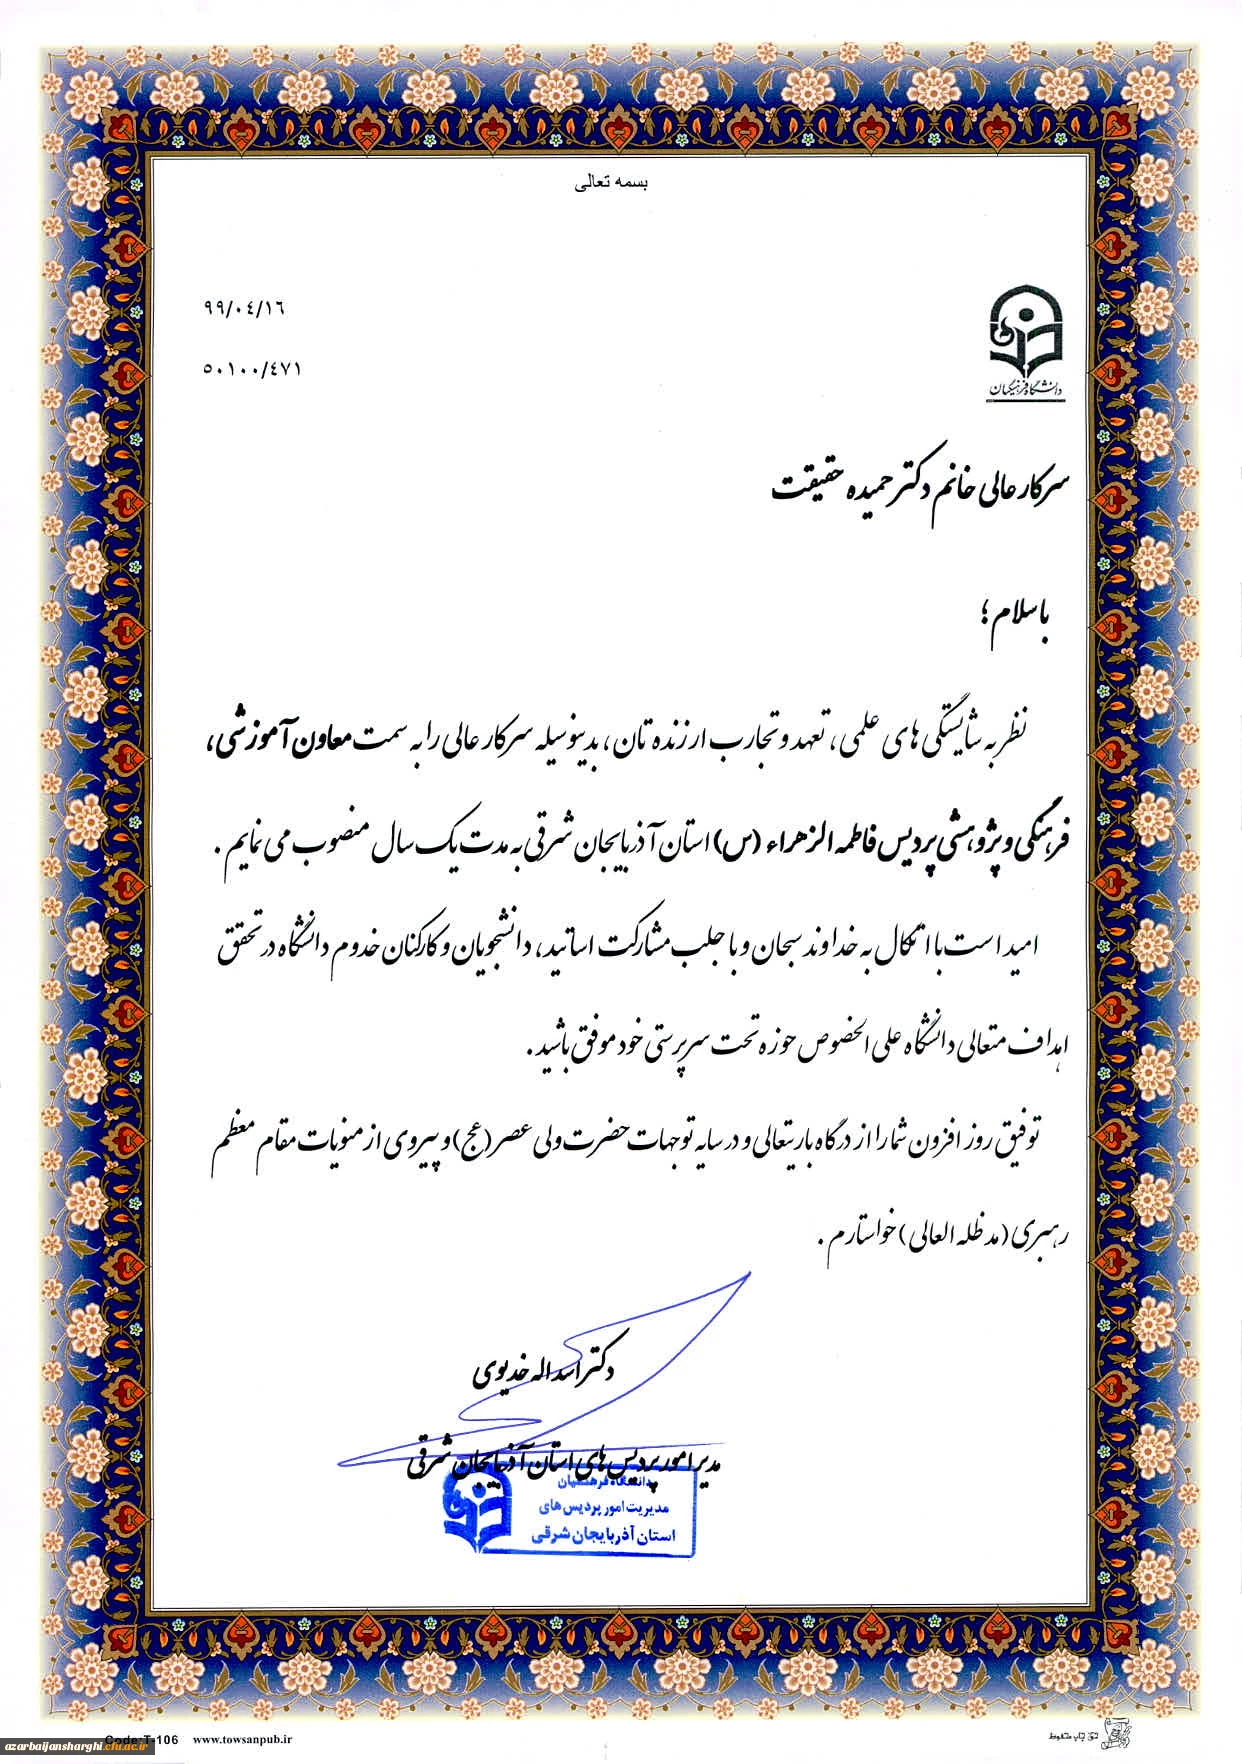 بسمه تعالی
۹۹/۰٤/۱٦
٥۰۱۰۰/٤۷۱
دانشگاه فرهنگیان
سرکار عالی خانم دکتر حمیده حقیقت
با سلام؛
نظر به شایستگی های علمی، تعهد و تجارب ارزنده تان، بدینوسیله سرکار عالی را به سمت معاون آموزشی،
فرهنگی و پژوهشی پردیس فاطمه الزهراء (س) استان آذربایجان شرقی به مدت یک سال منصوب می نمایم.
امید است با اتکال به خداوند سبحان و با جلب مشارکت اساتید، دانشجویان و کارکنان خدوم دانشگاه در تحقق
اهداف متعالی دانشگاه علی الخصوص حوزه تحت سرپرستی خود موفق باشید.
توفیق روز افزون شما را از درگاه باریتعالی و در سایه توجهات حضرت ولی عصر (عج) و پیروی از منویات مقام معظم
رهبری (مد ظله العالی) خواستارم.
دکتر اسداله خدیوی
مدیر امور پردیس های استان آذربایجان شرقی
دانشگاه فرهنگیان
مدیریت امور پردیس های
استان آذربایجان شرقی
azarbaijansharghi.cfu.ac.ir
Code:T-106 www.towsanpub.ir
حق چاپ محفوظ